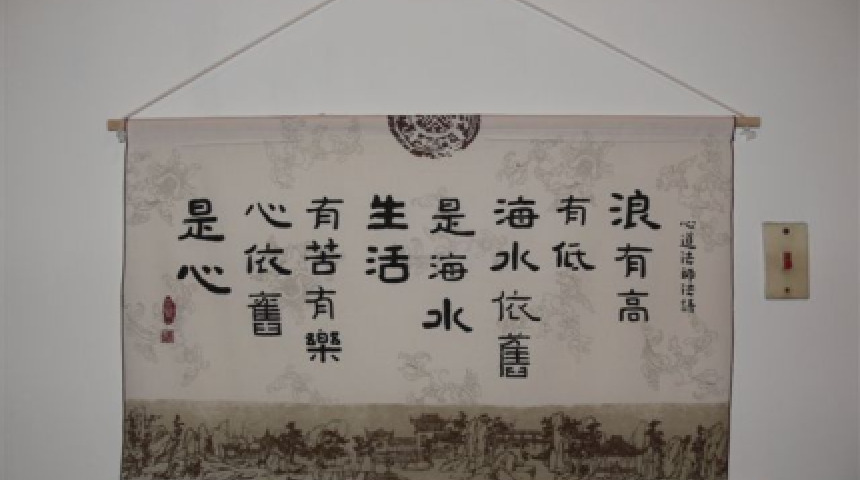 心道法師法語
浪有高
有低
海水依舊
是海水
生活
有苦有樂
心依舊
是心